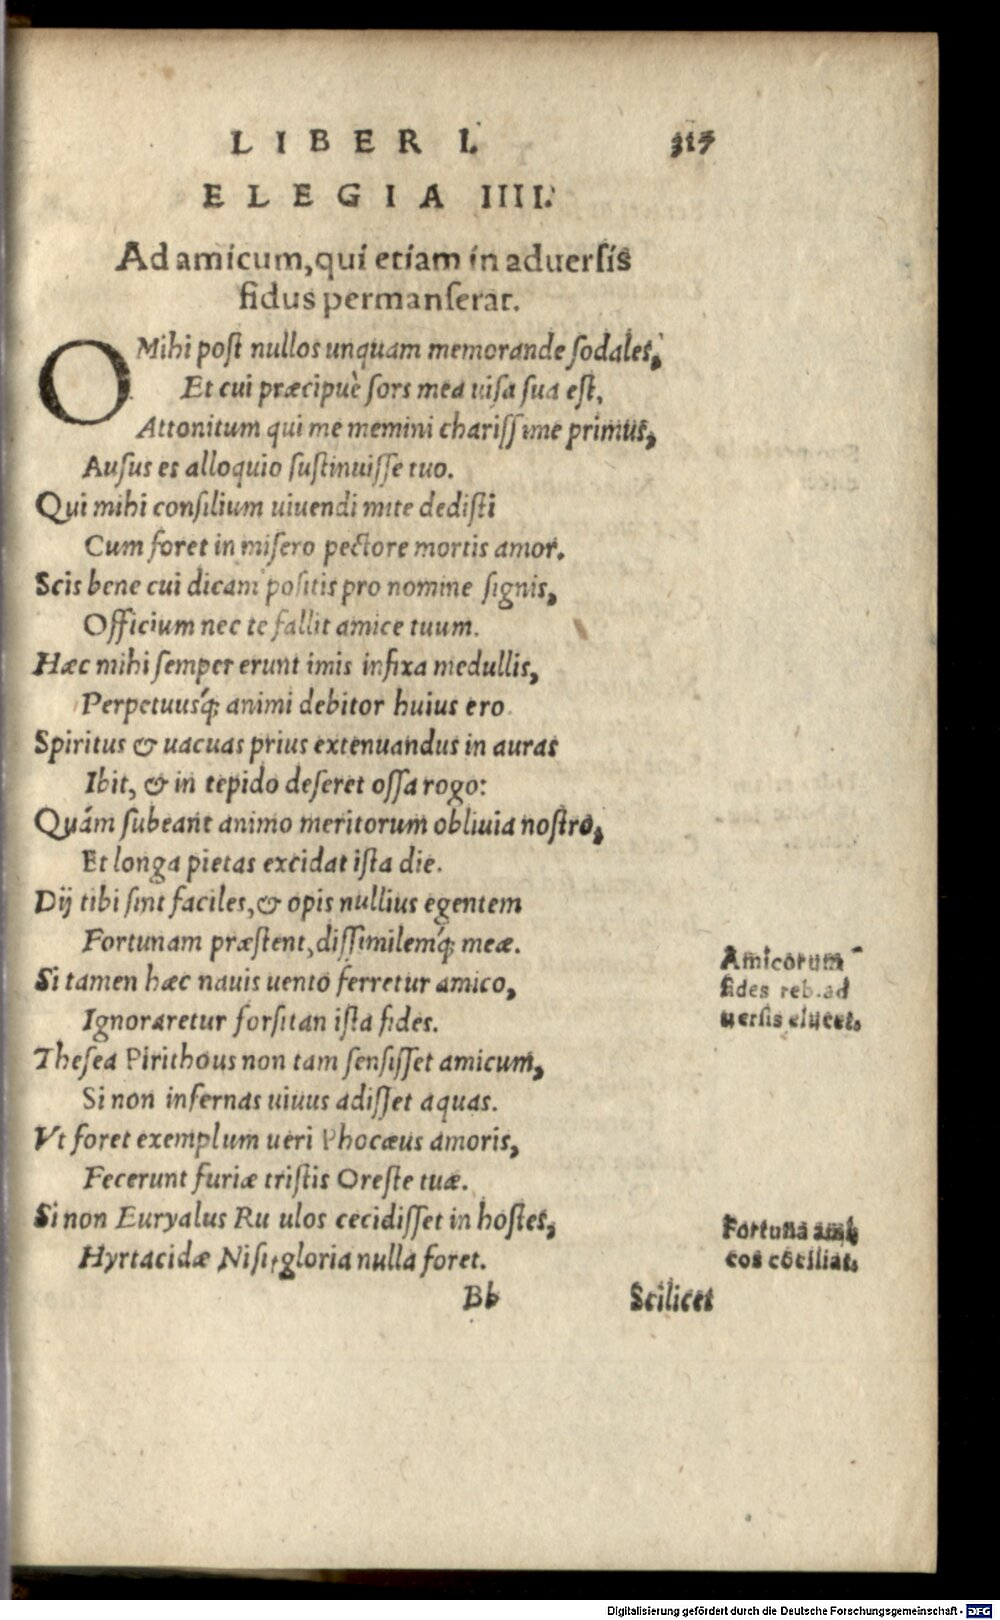 LIBER I. 317
ELEGIA IIII.
Ad amicum, qui etiam in aduersis
fidus permanserat.
O Mihi post nullos unquam memorande sodales,
Et cui præcipuè sors mea uisa sua est,
Attonitum qui me memini charissime primus,
Ausus es alloquio sustinuisse tuo.
Qui mihi consilium uiuendi mite dedisti
Cum foret in misero pectore mortis amor.
Scis bene cui dicam positis pro nomine signis,
Officium nec te fallit amice tuum.
Hæc mihi semper erunt imis infixa medullis,
Perpetuusq́; animi debitor huius ero
Spiritus & uacuas prius extenuandus in auras
Ibit, & in tepido deseret ossa rogo:
Quám subeant animo meritorum obliuia nostro,
Et longa pietas excidat ista die.
Dij tibi sint faciles, & opis nullius egentem
Fortunam præstent, dissimilemq́; meæ.
Si tamen hæc nauis uento ferretur amico,
Ignoraretur forsitan ista fides.
Thesea Pirithous non tam sensisset amicum,
Si non infernas uiuus adisset aquas.
Vt foret exemplum ueri Phocæus amoris,
Fecerunt furiæ tristis Oreste tuæ.
Si non Euryalus Ru ulos cecidisset in hostes,
Hyrtacidæ Nisi, gloria nulla foret.
Amicorum
fides reb. ad
uersis elucet.
Fortuna ami
cos cōciliat.
Bb Scilicet
Digitalisierung gefördert durch die Deutsche Forschungsgemeinschaft - DFG